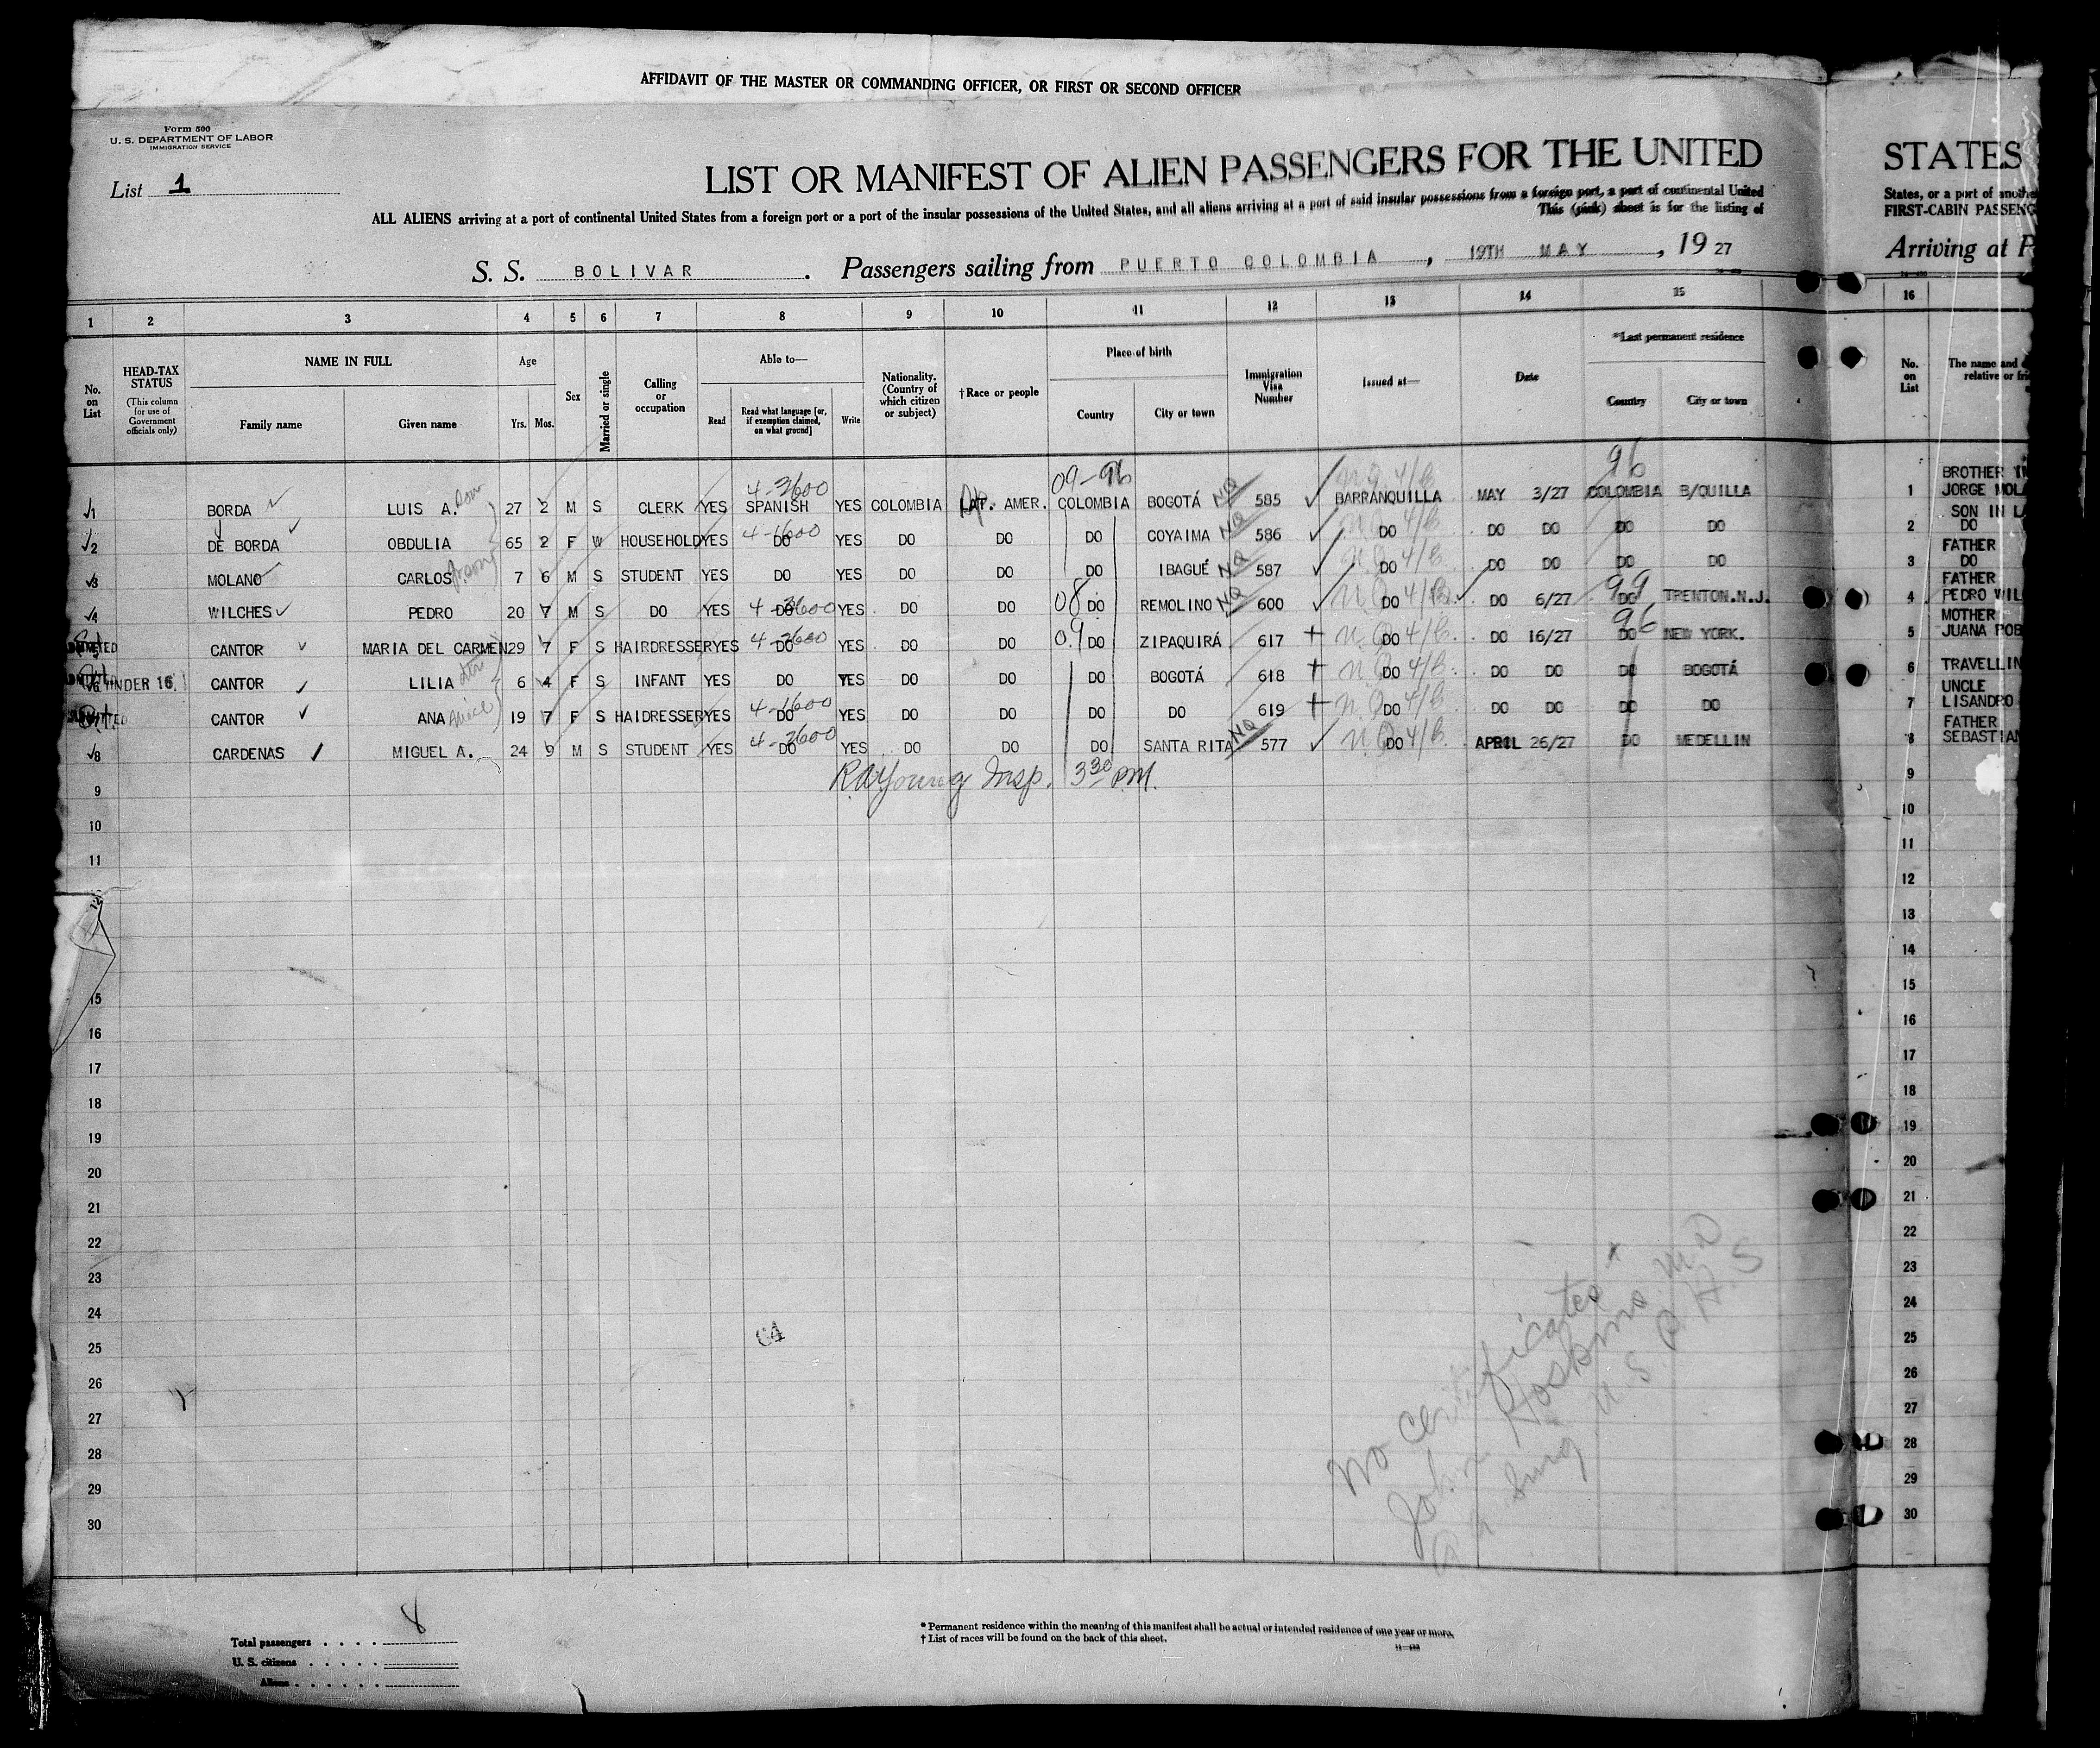 AFFIDAVIT OF THE MASTER OR COMMANDING OFFICER, OR FIRST OR SECOND OFFICER
Form 500
U. S. DEPARTMENT OF LABOR
IMMIGRATION SERVICE
List 1
LIST OR MANIFEST OF ALIEN PASSENGERS FOR THE UNITED
STATES
ALL ALIENS arriving at a port of continental United States from a foreign port or a port of the insular possessions of the United States, and all aliens arriving at a port of said insular possessions from a foreign port, a port of continental United
States, or a port of another
This (pink) sheet is for the listing of
FIRST-CABIN PASSENG
S. S. BOLIVAR. Passengers sailing from PUERTO COLOMBIA, 19TH MAY, 19 27
Arriving at P
1 2 3 4 5 6 7 8 9 10 11 12 13 14 15 16
No. on List
HEAD-TAX STATUS
(This column for use of Government officials only)
NAME IN FULL
Family name
Given name
Age
Yrs. Mos.
Sex
Married or single
Calling or occupation
Able to—
Read
Read what language [or, if exemption claimed, on what ground]
Write
Nationality. (Country of which citizen or subject)
†Race or people
Place of birth
Country
City or town
Immigration Visa Number
Issued at—
Date
*Last permanent residence
Country
City or town
No. on List
The name and
relative or fri
4-2600 09-96 96
1 BORDA LUIS A. 27 2 M S CLERK YES SPANISH YES COLOMBIA LAT. AMER. COLOMBIA BOGOTÁ NQ 585 BARRANQUILLA MAY 3/27 COLOMBIA B/QUILLA 1 BROTHER
JORGE MOL
2 DE BORDA OBDULIA 65 2 F W HOUSEHOLD YES 4-1600 DO YES DO DO DO COYAIMA NQ 586 DO DO DO DO DO 2 SON IN LA
DO
3 MOLANO CARLOS 7 6 M S STUDENT YES DO YES DO DO DO IBAGUÉ NQ 587 DO DO DO DO DO 3 FATHER
DO
4 WILCHES PEDRO 20 7 M S DO YES 4-3600 DO YES DO DO 08 DO REMOLINO NQ 600 DO DO 6/27 99 DO TRENTON.N.J. 4 FATHER
PEDRO WIL
ADMITTED CANTOR MARIA DEL CARMEN 29 7 F S HAIRDRESSER YES 4-2600 DO YES DO DO 09 DO ZIPAQUIRÁ 617 DO DO 16/27 96 DO NEW YORK. 5 MOTHER
JUANA ROB
6 UNDER 16 CANTOR LILIA 6 4 F S INFANT YES DO YES DO DO DO BOGOTÁ 618 DO DO DO DO BOGOTÁ 6 TRAVELLIN
ADMITTED CANTOR ANA niece 19 7 F S HAIDRESSER YES 4-1600 DO YES DO DO DO DO 619 DO DO DO DO DO 7 UNCLE
LISANDRO
8 CARDENAS MIGUEL A. 24 9 M S STUDENT YES 4-2600 DO YES DO DO DO SANTA RITA NQ 577 DO APRIL 26/27 DO MEDELLIN 8 FATHER
SEBASTIAN
Young Insp. 3 30 P.M.
9 9
10 10
11 11
12 12
13
14
15 15
16 16
17 17
18 18
19 19
20 20
21 21
22 22
23 23
24 24
25 25
26 26
27 27
28 28
29 29
30 30
64
No certificates
John Hoskins M D
Surg U. S. P. H. S
Total passengers . . . . 8
U. S. citizens . . . . .
Aliens . . . . . .
* Permanent residence within the meaning of this manifest shall be actual or intended residence of one year or more.
† List of races will be found on the back of this sheet.